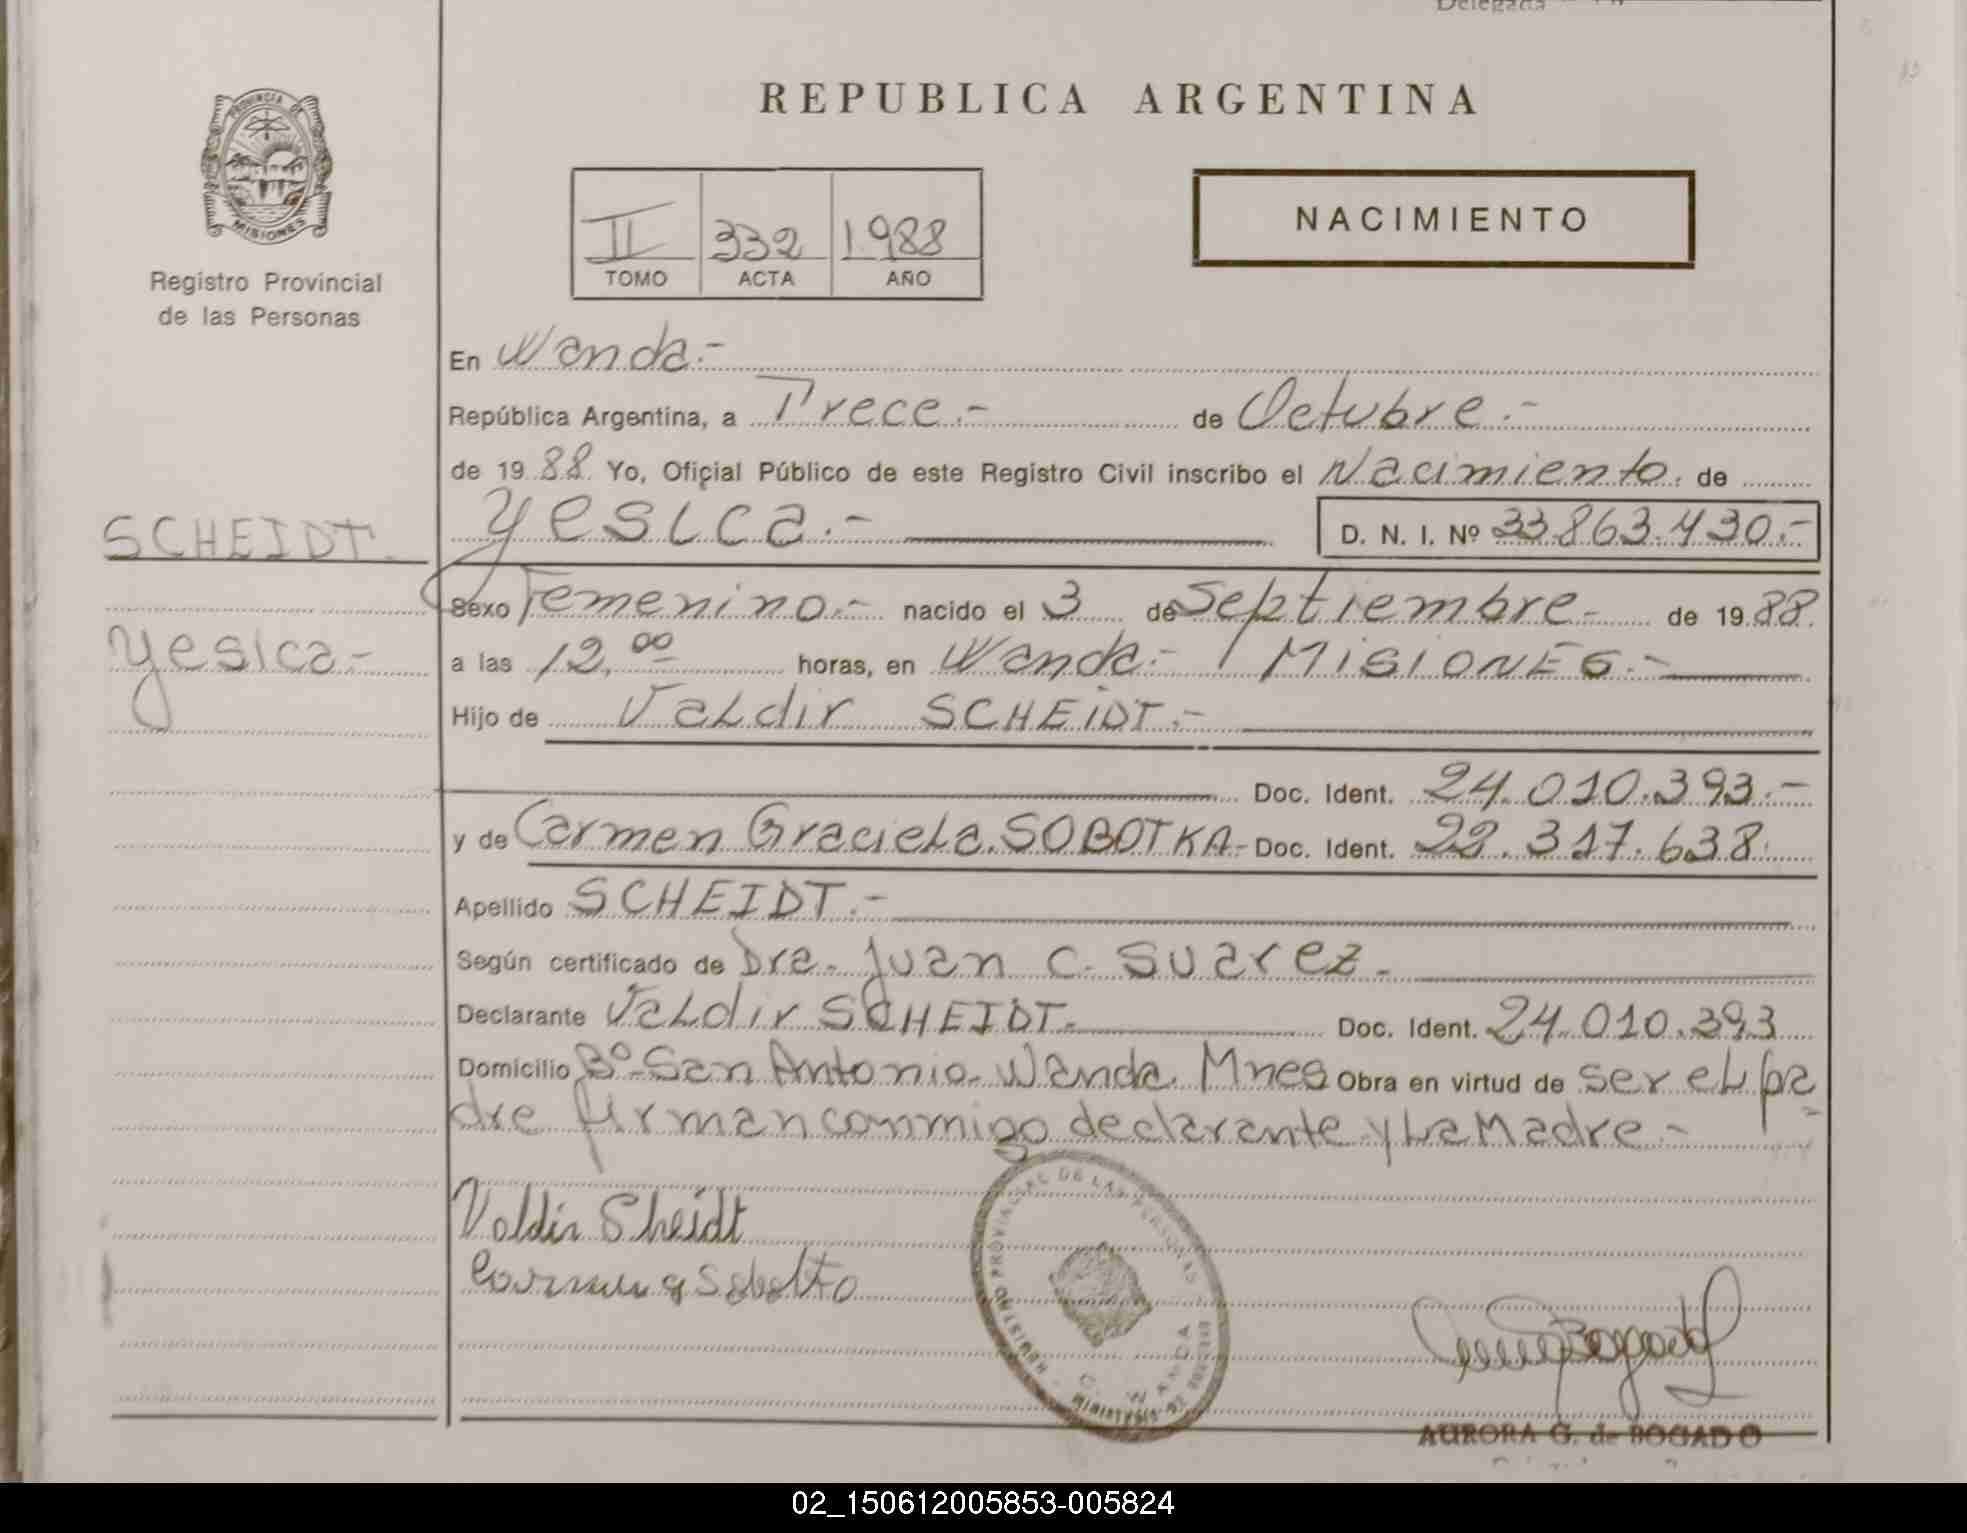 Delegada
PROVINCIA DE
MISIONES
Registro Provincial
de las Personas
REPUBLICA ARGENTINA
II 332 1988
TOMO ACTA AÑO
NACIMIENTO
En Wanda.-
República Argentina, a Trece.- de Octubre.-
de 1988 Yo, Oficial Público de este Registro Civil inscribo el Nacimiento. de
SCHEIDT.
Yesica.- D. N. I. Nº 33.863.430.-
Sexo Femenino.- nacido el 3 de Septiembre.- de 1988.
Yesica.-
a las 12,00 horas, en Wanda.- MISIONES.-
Hijo de Valdir SCHEIDT.-
Doc. Ident. 24.010.393.-
y de Carmen Graciela.SOBOTKA.- Doc. Ident. 22.317.638.
Apellido SCHEIDT.-
Según certificado de Dra. Juan C. Suarez.
Declarante Valdir SCHEIDT.- Doc. Ident. 24.010.393
Domicilio Bº.San Antonio.Wanda. Mnes Obra en virtud de ser el pa
dre firman conmigo declarante y La Madre.-
Valdir Sheidt
REGISTRO PROVINCIAL DE LAS PERSONAS
WANDA
MINISTERIO DE GOBIERNO
AURORA G. de BOGADO
02_150612005853-005824